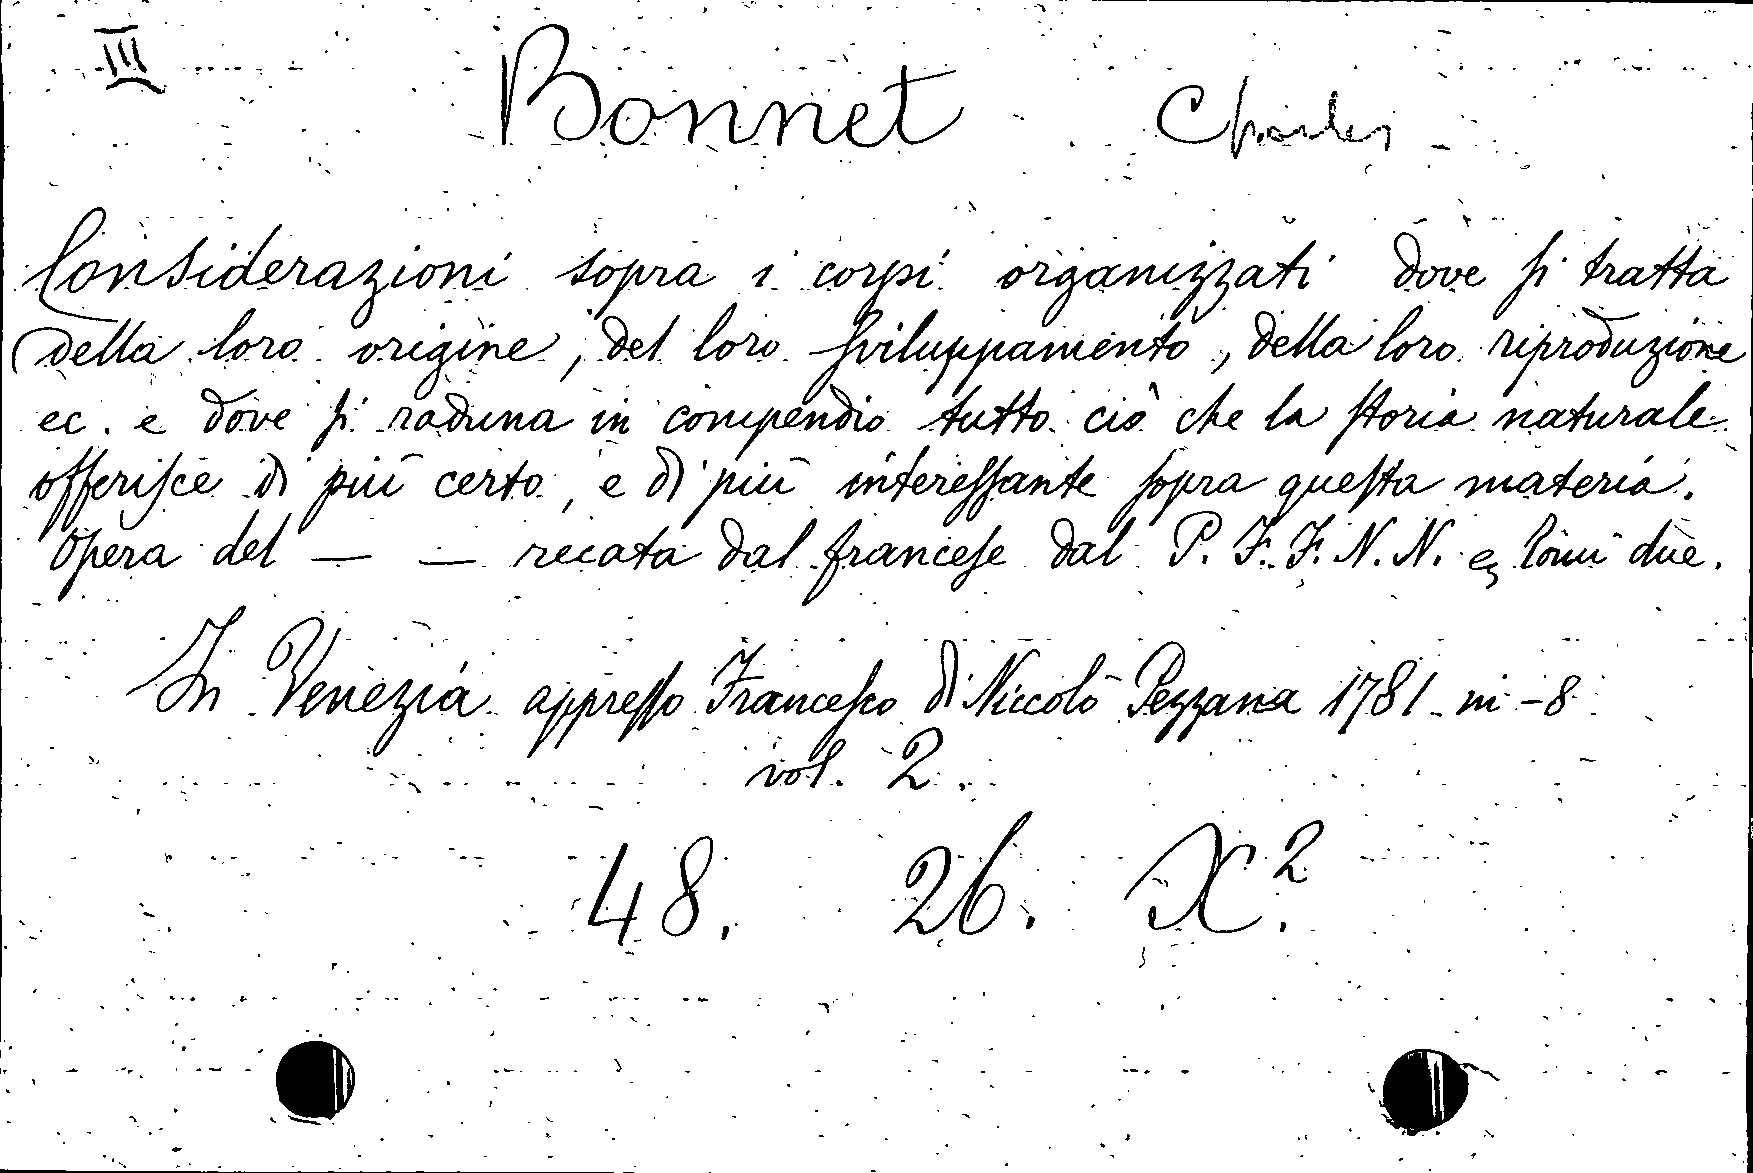 III
Bonnet Charles
Considerazioni sopra i corpi organizzati dove ſi tratta
della loro origine, del loro ſviluppamento, della loro riproduzione
ec. e dove ſi raduna in compendio tutto ciò che la ſtoria naturale
offeriſce di più certo, e di più intereſſante ſopra queſta materia.
Opera del — — recata dal franceſe dal P. F. F. N. N. e tomi due.
In Venezia appreſſo Franceſco di Niccolò Pezzana 1781 in-8
vol. 2.
48. 26. X².